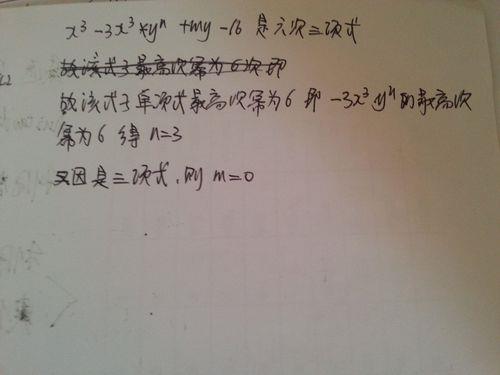 x³-3x³*yⁿ+my-16 是六次三项式
故该式子最高次幂为6次即
故该式子单项式最高次幂为6 即 -3x³yⁿ的最高次
幂为6 得 n=3
又因是三项式,则 m=0